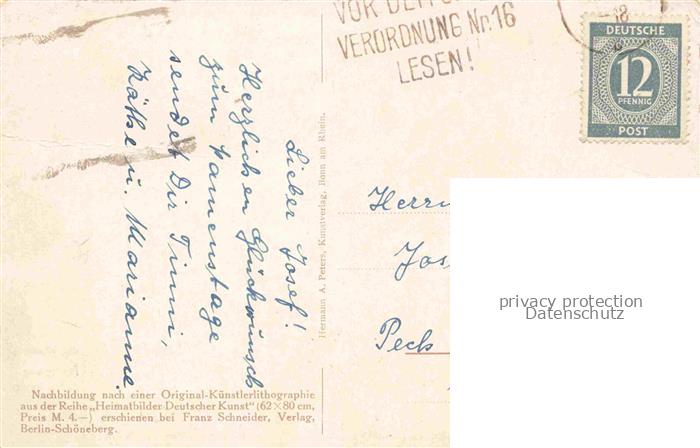 VERORDNUNG Nr. 16
LESEN!
18
DEUTSCHE
12
PFENNIG
POST
Lieber Josef!
Herzlichen Glückwunsch
zum Namenstage
sendet Dir Timmi,
Käthe u. Marianne.
Hermann A. Peters, Kunstverlag, Bonn am Rhein.
Herrn
Jos
Peck
privacy protection
Datenschutz
Nachbildung nach einer Original-Künstlerlithographie
aus der Reihe „Heimatbilder Deutscher Kunst" (62×80 cm,
Preis M. 4.—) erschienen bei Franz Schneider, Verlag,
Berlin-Schöneberg.